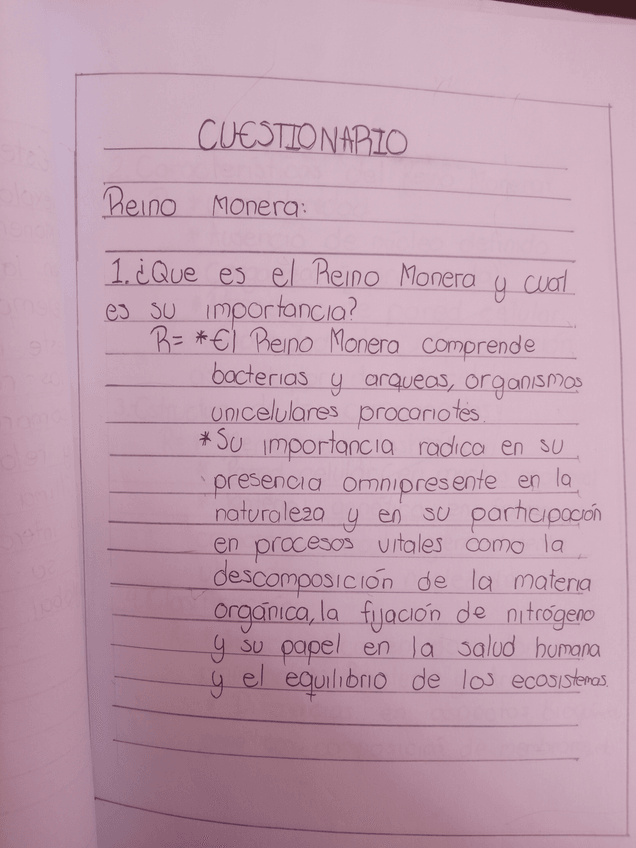 CUESTIONARIO
Reino Monera:
1. ¿Que es el Reino Monera y cual
es su importancia?
R= * El Reino Monera comprende
bacterias y arqueas, organismos
unicelulares procariotes.
* Su importancia radica en su
presencia omnipresente en la
naturaleza y en su participación
en procesos vitales como la
descomposición de la materia
orgánica, la fijación de nitrógeno
y su papel en la salud humana
y el equilibrio de los ecosistemas.